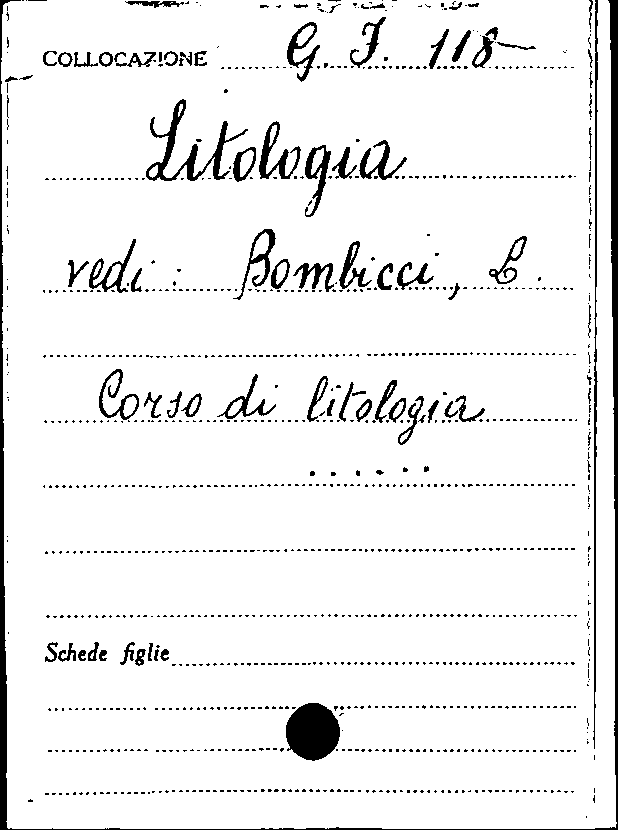 COLLOCAZIONE G. I. 118
Litologia
vedi: Bombicci, L.
Corso di litologia
......
Schede figlie